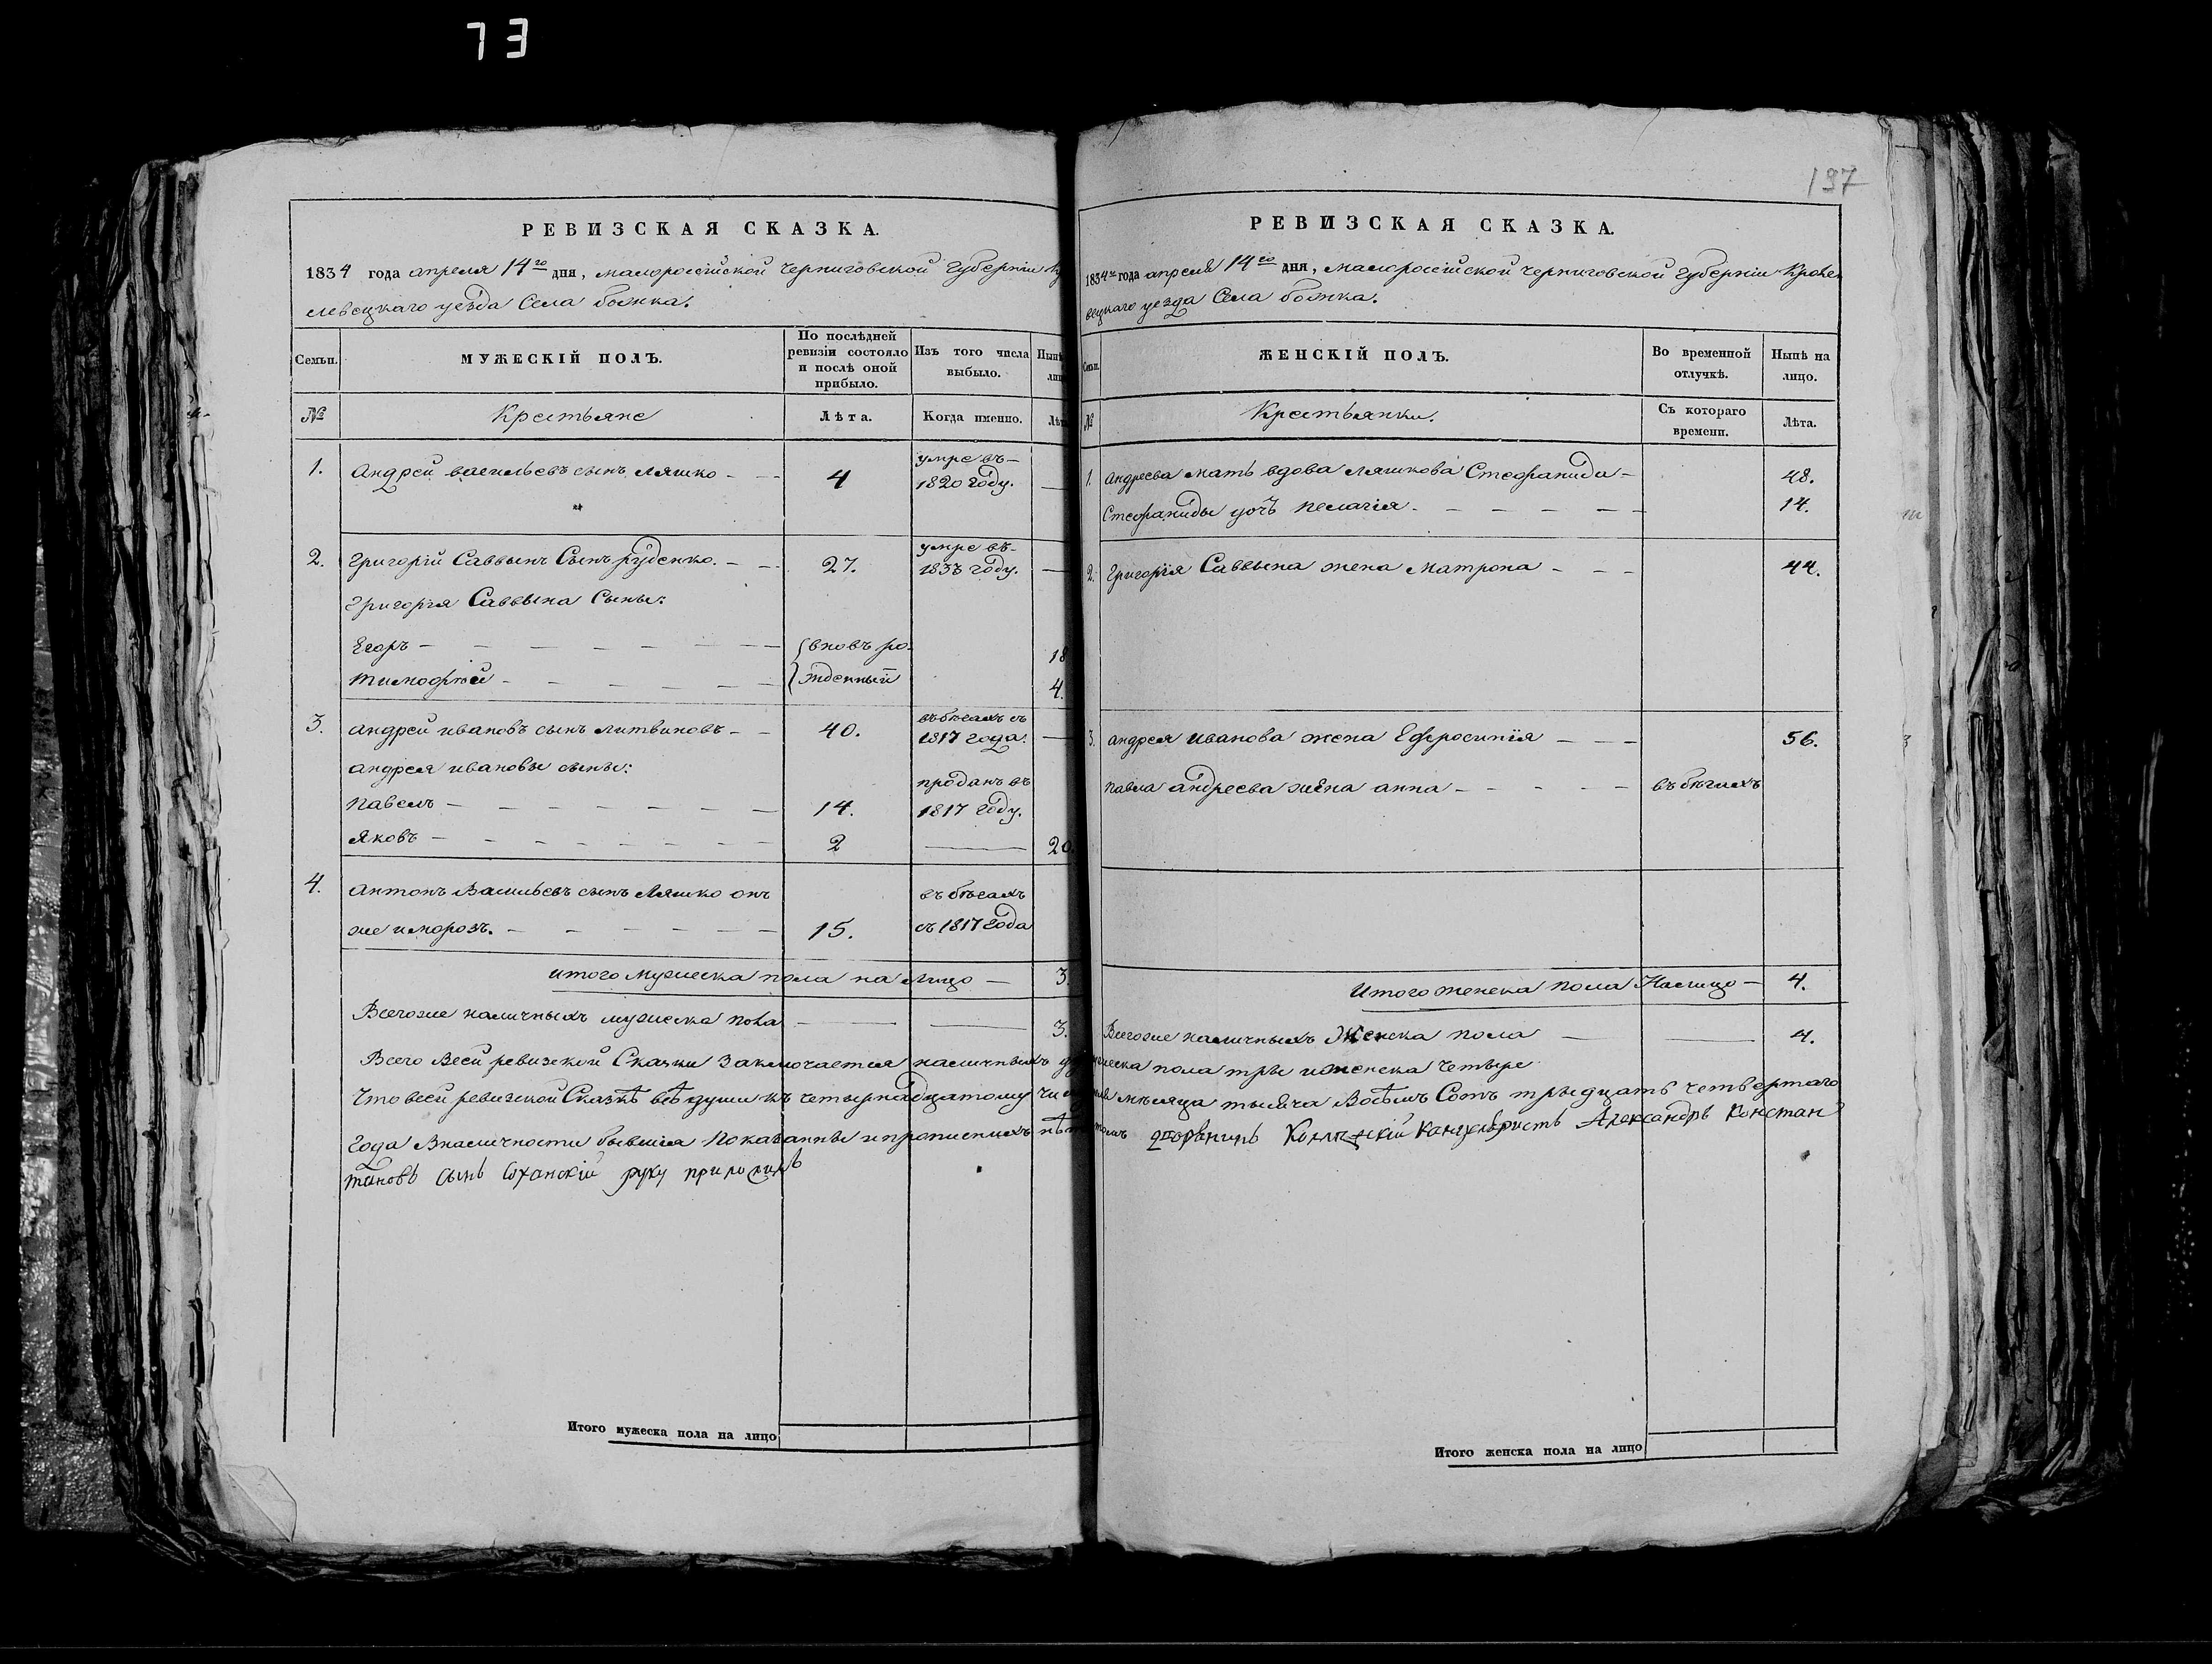 73
РЕВИЗСКАЯ СКАЗКА.
1834 года апреля 14го дня, малоросiйской черниговской губернiи
левецкаго уезда Села божка.
Семьи. МУЖЕСКІЙ ПОЛЪ. По послѣдней ревизіи состояло и послѣ оной прибыло. Изъ того числа выбыло. Нынѣ
№ Крестьяне Лѣта. Когда именно.
умре въ
1. андрей васильевъ сынъ ляшко 4 1820 году.
умре въ
2. григорій Саввынъ Сынъ руденко. 27. 1833 году.
григорія Саввына Сыны:
Егоръ вновъ ро 18
тимофѣй жденный 4.
въ бѣгахъ съ
3. андрей ивановъ сынъ литвиновъ 40. 1817 года.
андрея ивановы сыны:
проданъ въ
павелъ 14. 1817 году.
яковъ 2 20.
4. антонъ Васильевъ сынъ Ляшко онъ въ бѣгахъ
же и морозъ. 15. съ 1817 года
итого мужеска пола на лицо 3.
Всего же наличныхъ мужеска пола 3.
Всего Всей ревизской Сказки заключается наличныхъ
Что всей ревизской Сказкѣ всѣ души къ четырнадцатому
года Вналичности бывшия показанны и прописныхъ
тиновъ сынъ Соханскій руку приложилъ
Итого мужеска пола на лицо
197
РЕВИЗСКАЯ СКАЗКА.
1834го года апреля 14го дня, малоросiйской черниговской губернiи Кроле
вецкаго уезда Села божка.
Семьи. ЖЕНСКІЙ ПОЛЪ. Во временной отлучкѣ. Нынѣ на лицо.
№ Крестьянки. Съ котораго времени. Лѣта.
1. андреева мать вдова ляшкова Стефанида 48.
Стефаниды дочъ пелагія 14.
2. григорія Саввына жена матрона 44.
3. андрея иванова жена Ефросинія 56.
павла андреева жена анна въ бѣгахъ
Итого женска пола Налицо 4.
Всего же наличныхъ Женска пола 4.
мужеска пола три и женска четыре
мѣсяца тысяча Восѣмъ Сотъ тридцать четвертаго
дворянинъ Коллежскій Канцеляристъ Александръ Констан
Итого женска пола на лицо